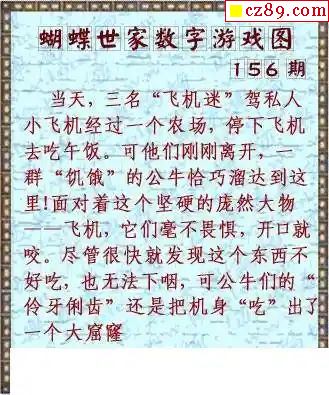 cz89.com
蝴蝶世家数字游戏图
156期
当天，三名“飞机迷”驾私人
小飞机经过一个农场，停下飞机
去吃午饭。可他们刚刚离开，一
群“饥饿”的公牛恰巧溜达到这
里!面对着这个坚硬的庞然大物
——飞机，它们毫不畏惧，开口就
咬。尽管很快就发现这个东西不
好吃，也无法下咽，可公牛们的“
伶牙俐齿”还是把机身“吃”出了
一个大窟窿